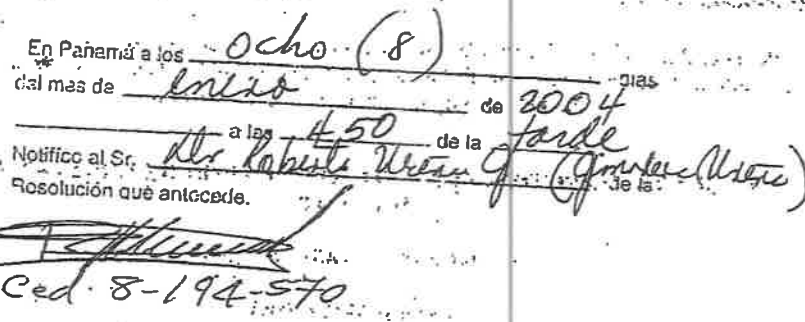 En Panamá a los Ocho (8) días
del mes de enero de 2004
a las 4.50 de la tarde
Notifico al Sr. Roberto Ureña G. de la
Resolución que antecede.
Ced. 8-194-570